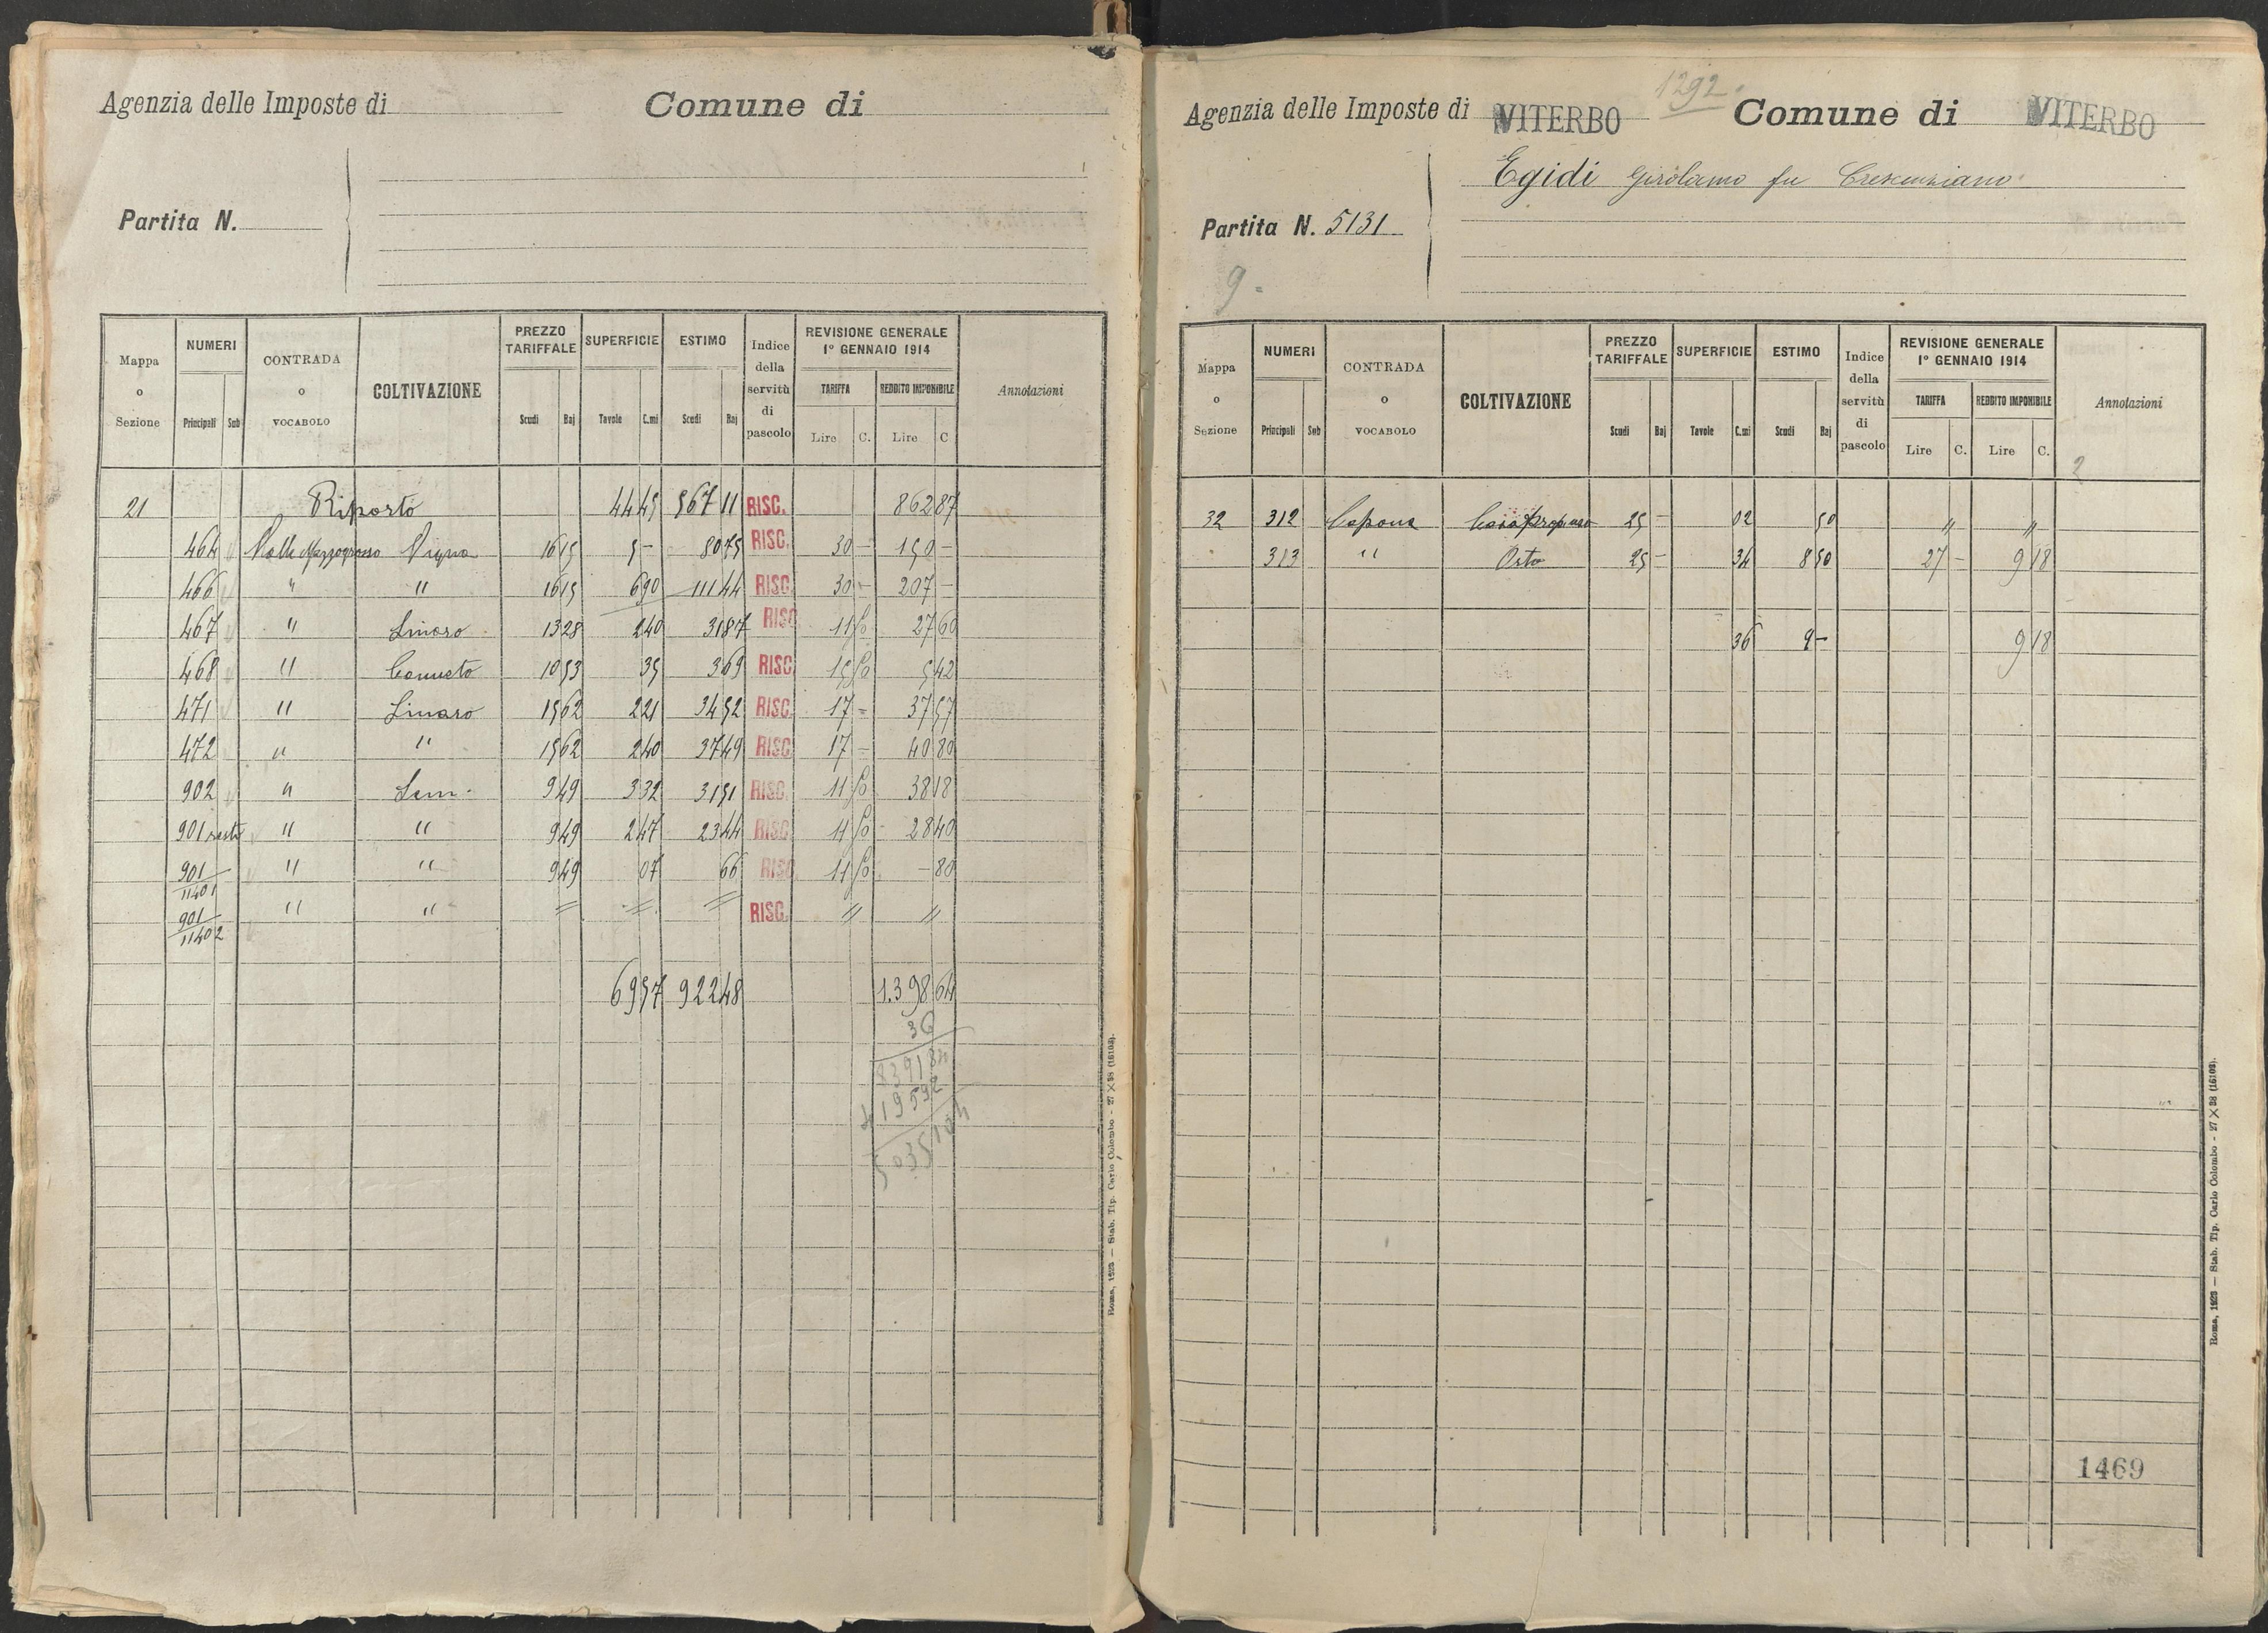 Agenzia delle Imposte di Comune di
Partita N.
Mappa o Sezione NUMERI Principali Sub CONTRADA o VOCABOLO COLTIVAZIONE PREZZO TARIFFALE Scudi Baj SUPERFICIE Tavole C.mi ESTIMO Scudi Baj Indice della servitù di pascolo REVISIONE GENERALE 1° GENNAIO 1914 TARIFFA Lire C. REDDITO IMPONIBILE Lire C Annotazioni
21 Riporto 44 45 567 11 RISC. 862 87
464 Valle Mazzogrosso Vigna 16 15 5 - 80 75 RISC. 30 - 150 -
466 " " 16 15 6 90 111 44 RISC 30 - 207 -
467 " 13 28 2 40 31 87 RISC 11 50 27 60
468 " Canneto 10 53 35 3 69 RISC 15 50 5 42
471 " 15 62 2 21 34 52 RISC. 17 - 37 57
472 " " 15 62 2 40 37 49 RISC 17 - 40 80
902 " Sem. 9 49 3 32 31 51 RISC. 11 50 38 18
901 resto " " 9 49 2 47 23 44 RISC 11 50 28 40
901/11401 " " 9 49 07 66 RISC 11 50 - 80
901/11402 " " = = = RISC. " "
69 57 922 48 1.398 64
36
839184
419592
5035104
Roma, 1923 — Stab. Tip. Carlo Colombo - 27 × 38 (16103).
1292.
Agenzia delle Imposte di VITERBO Comune di VITERBO
Egidi Girolamo fu Crescenziano
Partita N. 5131
9 =
Mappa o Sezione NUMERI Principali Sub CONTRADA o VOCABOLO COLTIVAZIONE PREZZO TARIFFALE Scudi Baj SUPERFICIE Tavole C.mi ESTIMO Scudi Baj Indice della servitù di pascolo REVISIONE GENERALE 1° GENNAIO 1914 TARIFFA Lire C. REDDITO IMPONIBILE Lire C. Annotazioni
2
32 312 Capone Casa 25 - 02 50 " "
313 " Orto 25 - 34 8 50 27 - 9 18
36 9 - 9 18
1469
Roma, 1923 — Stab. Tip. Carlo Colombo - 27 × 38 (16103).